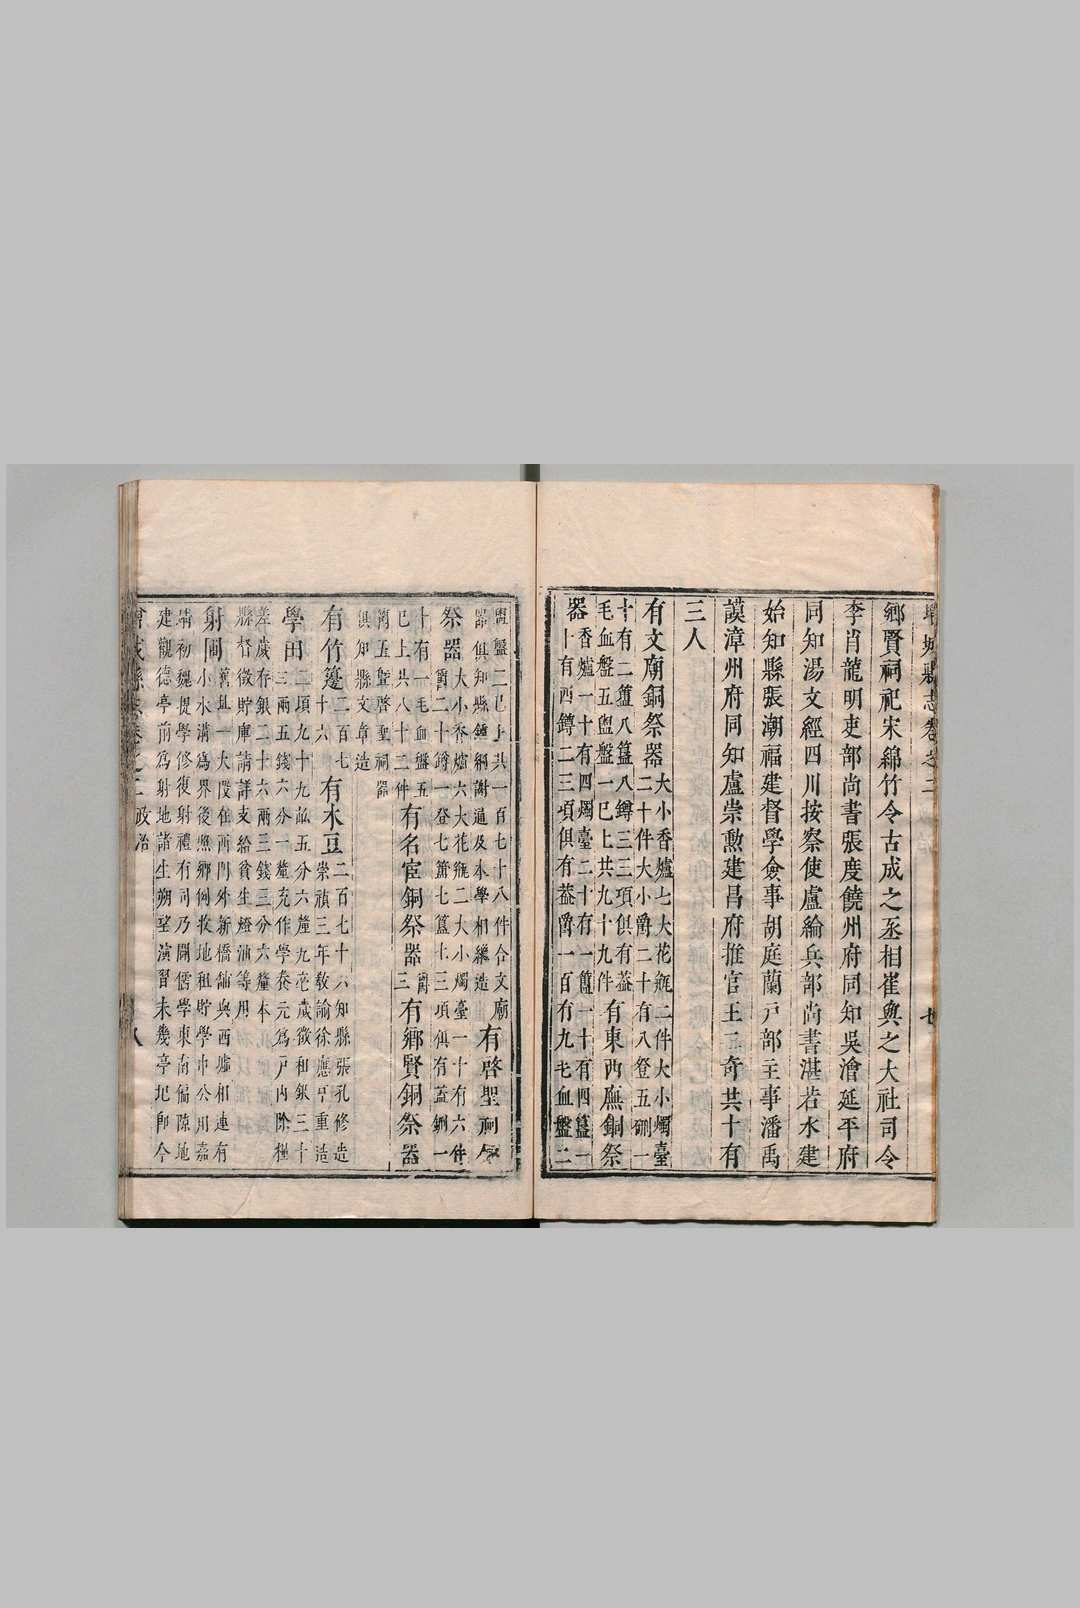 增城縣志卷之二 七
鄉賢祠祀宋綿竹令古成之丞相崔與之大社司令
李肖龍明吏部尚書張度饒州府同知吳澮延平府
同知湯文經四川按察使盧綸兵部尚書湛若水建
始知縣張潮福建督學僉事胡庭蘭戶部主事潘禹
謨漳州府同知盧崇勳建昌府推官王三奇共十有
三人
有文廟銅祭器大小香爐七大花瓶二件大小燭臺
二十件大小爵二十有八登五鉶一
十有二簠八簋八罇三三項俱有蓋
毛血盤五盥盤一已上共九十九件
有東西廡銅祭
器香爐一十有四燭臺二十有一簠一十有四簋一
十有四罇二三項俱有蓋爵一百有九毛血盤二
盥盤二已上共一百七十八件合文廟
器俱知縣鍾綱謝逼及本學相繼造
有啓聖祠
祭器大小香爐六大花瓶二大小燭臺一十有六件
爵二十罇一登七簠七簋十三項俱有蓋鉶一
十有一毛血盤五
已上共八十二件
有名宦銅祭器爵
三
有鄉賢銅祭器
爵五暨啓聖祠器
俱知縣文章造
有竹籩二百七
十六
有木豆二百七十六知縣張孔修造
崇禎三年教諭徐應甲重造
學田二頃九十九畝五分六釐九壱歲徵和銀三十
三兩五錢六分一釐充作學奏元爲戶內除糧
差歲存銀二十六兩三錢三分六釐本
縣督徵貯庫請詳支給貧生燈油等用
射圃舊址一大段在西門外新橋舖與西墟相連有
小水溝爲界後照鄉例收地租貯學中公用嘉
靖初魏提學修復射禮有司乃闢儒學東南偏隙地
建觀德亭前爲射地諸生朔望演習未幾亭圮卽今
增城縣志卷之二 政治 八